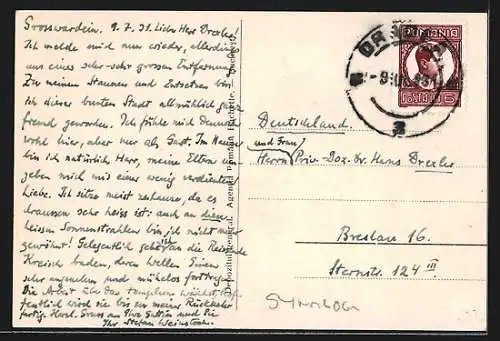 Grosswardein. 9.7.31. Lieber Herr Drexler!
Ich melde mich nun wieder, allerdings
aus einer sehr-sehr grossen Entfernung.
Zu meinem Staunen und Entsetzen bin
ich dieser bunten Stadt allmählich ganz
fremd geworden. Ich fühle mich
wohl hier, aber nur als Gast. Im Hause
bin ich natürlich Herr, meine Eltern
geben mich mit einer wenig verdienten
Liebe. Ich sitze meist zuhause, da es
draussen sehr heiss ist: auch an diese
heissen Sonnenstrahlen bin ich nicht mehr
gewöhnt! Gelegentlich geh ich an die Reissende
Kreisch baden, deren Wellen Einen
sehr angenehm und mühelos forttragen.
Die Arbeit über das wächst,
hoffentlich wird sie bis zu meiner Rückkehr
fertig. Herzl. Gruss an Ihre Gattin und Sie
Ihr Stefan
Depozitul general. Agenția Română Hachette. Bucureşti
ORADEA
2
ROMANIA
POSTA
6
Deutschland
und Frau
Herrn Priv-Doz. Dr. Hans Drexler
Breslau 16.
Sternstr. 124 III